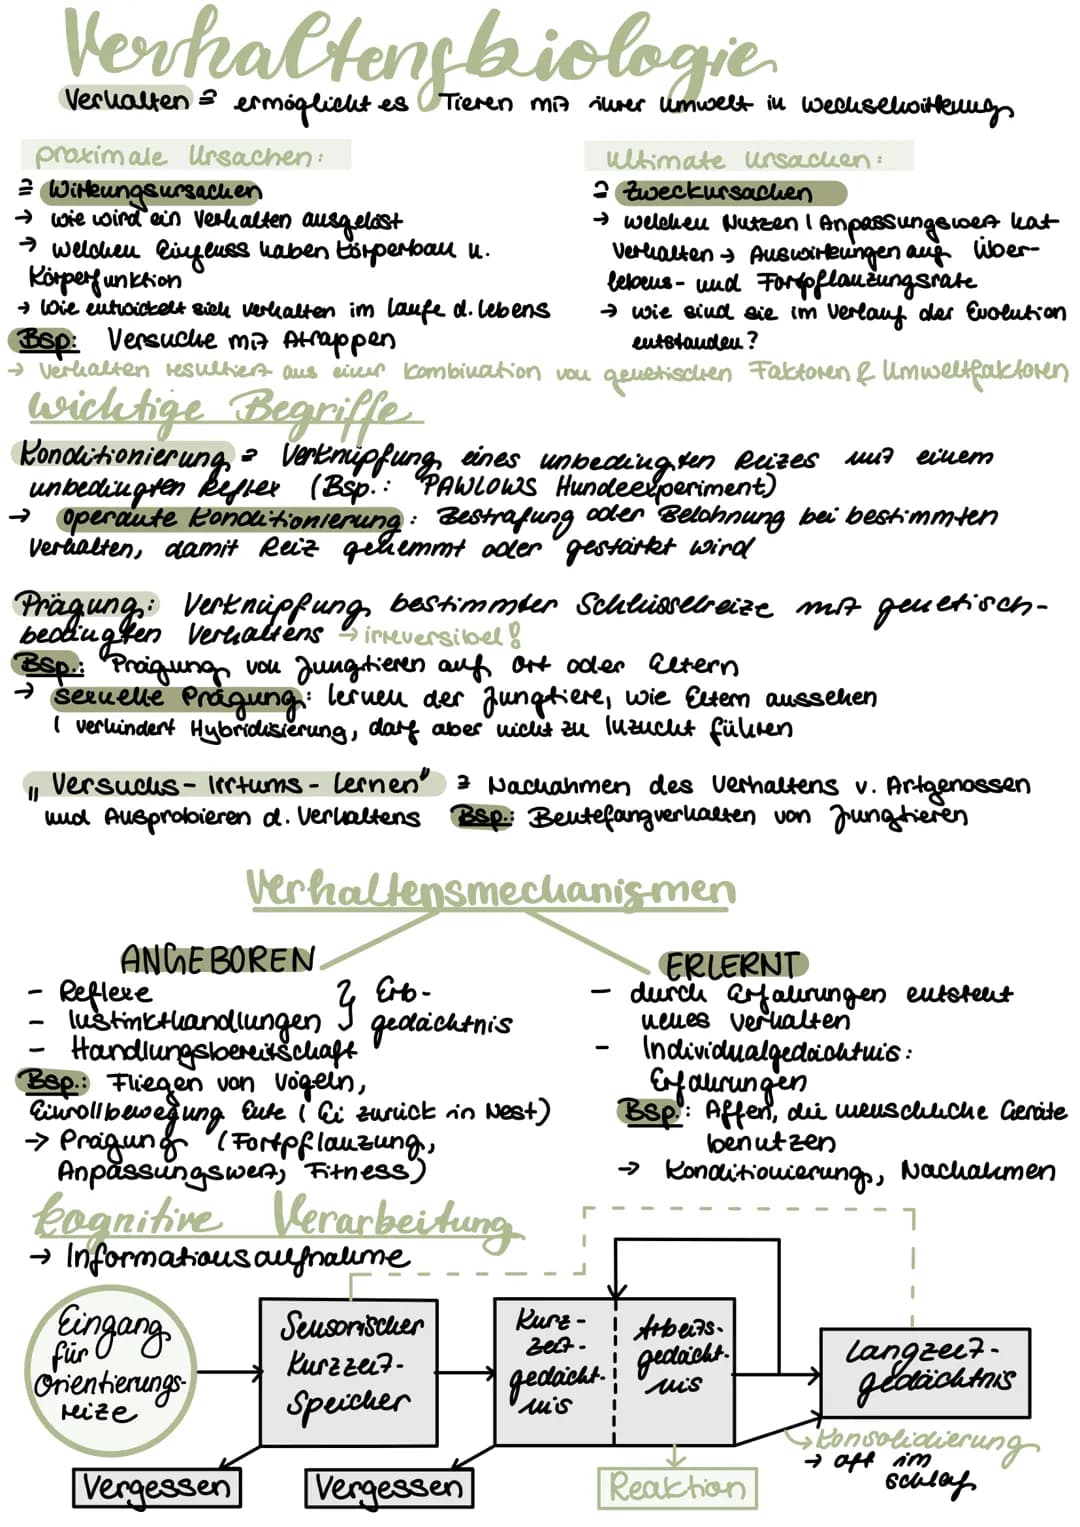 Verhaltensbiologie
Verhalten ≙ ermöglicht es Tieren mit ihrer Umwelt in Wechselwirkung
proximale Ursachen:
≙ Wirkungsursachen
→ wie wird ein Verhalten ausgelöst
→ welchen Einfluss haben Körperbau u.
Körperfunktion
→ Wie entwickelt sich Verhalten im Laufe d. Lebens
Bsp: Versuche mit Atrappen
ultimate Ursachen:
≙ Zweckursachen
→ welchen Nutzen / Anpassungswert hat
Verhalten → Auswirkungen auf Über-
lebens- und Fortpflanzungsrate
→ wie sind sie im Verlauf der Evolution
entstanden?
→ Verhalten resultiert aus einer Kombination von genetischen Faktoren & Umweltfaktoren
wichtige Begriffe
Konditionierung ≙ Verknüpfung eines unbedingten Reizes mit einem
unbedingten Reflex (Bsp.: PAWLOWS Hundeexperiment)
→ operante Konditionierung: Bestrafung oder Belohnung bei bestimmten
Verhalten, damit Reiz gehemmt oder gestärkt wird
Prägung: Verknüpfung bestimmter Schlüsselreize mit genetisch-
bedingten Verhaltens → irreversibel!
Bsp.: Prägung von Jungtieren auf Ort oder Eltern
→ sexuelle Prägung: lernen der Jungtiere, wie Eltern aussehen
( verhindert Hybridisierung, darf aber nicht zu Inzucht führen
„Versuchs-Irrtums-Lernen" ≙ Nachahmen des Verhaltens v. Artgenossen
und Ausprobieren d. Verhaltens Bsp.: Beutefangverhalten von Jungtieren
Verhaltensmechanismen
ANGEBOREN
- Reflexe
- Instinkthandlungen } Erb-
gedächtnis
- Handlungsbereitschaft
Bsp.: Fliegen von Vögeln,
Einrollbewegung Ente ( Ei zurück in Nest)
→ Prägung (Fortpflanzung,
Anpassungswert, Fitness)
ERLERNT
- durch Erfahrungen entsteht
neues Verhalten
- Individualgedächtnis:
Erfahrungen
Bsp.: Affen, die menschliche Geräte
benutzen
→ Konditionierung, Nachahmen
kognitive Verarbeitung
→ Informationsaufnahme
Eingang
für
Orientierungs-
reize
Sensorischer
Kurzzeit-
Speicher
Kurz-
zeit-
gedächt-
nis
Arbeits-
gedächt-
nis
Langzeit-
gedächtnis
Konsolidierung
→ oft im
Schlaf
Vergessen
Vergessen
Reaktion